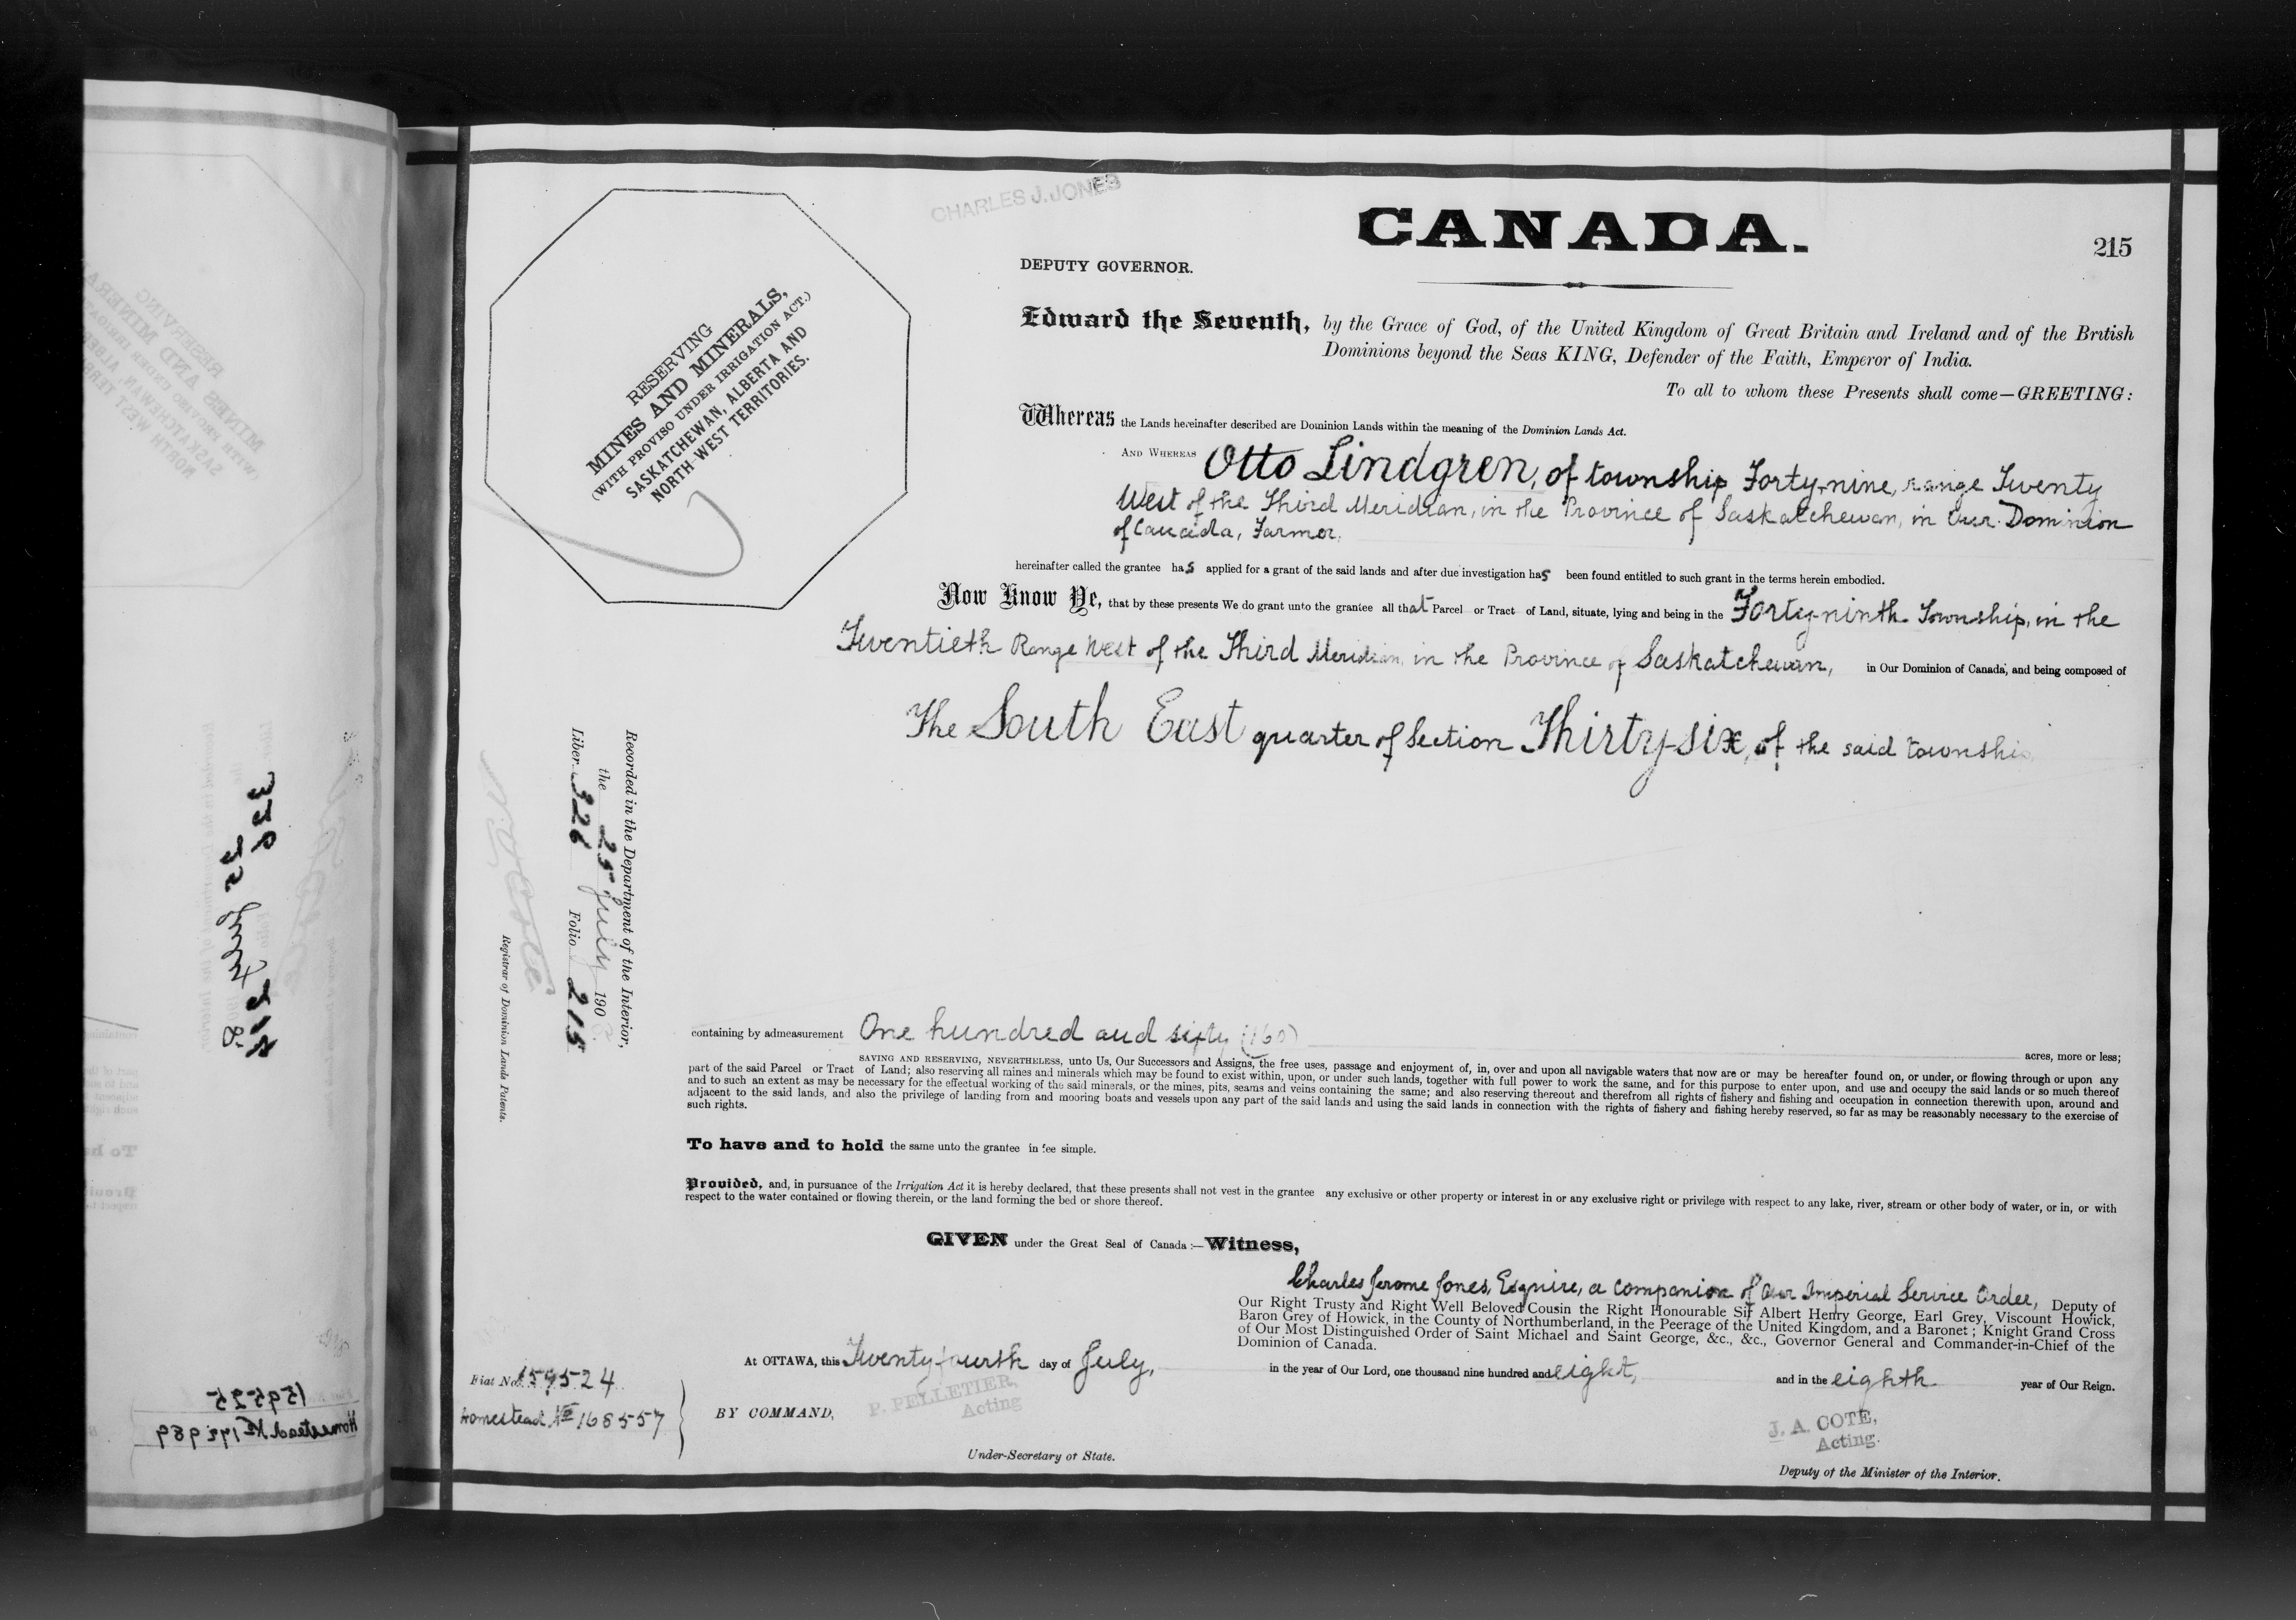 CHARLES J. JONES
CANADA.
215
DEPUTY GOVERNOR.
RESERVING
MINES AND MINERALS,
(WITH PROVISO UNDER IRRIGATION ACT.)
SASKATCHEWAN, ALBERTA AND
NORTH-WEST TERRITORIES.
Edward the Seventh, by the Grace of God, of the United Kingdom of Great Britain and Ireland and of the British
Dominions beyond the Seas KING, Defender of the Faith, Emperor of India.
To all to whom these Presents shall come—GREETING:
Whereas the Lands hereinafter described are Dominion Lands within the meaning of the Dominion Lands Act.
AND WHEREAS Otto Lindgren, of township Forty-nine, range Twenty
West of the Third Meridian, in the Province of Saskatchewan, in Our Dominion
of Canada, Farmer,
hereinafter called the grantee has applied for a grant of the said lands and after due investigation has been found entitled to such grant in the terms herein embodied.
Now Know Ye, that by these presents We do grant unto the grantee all that Parcel or Tract of Land, situate, lying and being in the Forty-ninth Township, in the
Twentieth Range West of the Third Meridian, in the Province of Saskatchewan, in Our Dominion of Canada, and being composed of
The South East quarter of Section Thirty-six, of the said township.
Recorded in the Department of the Interior,
the 25 July 1908
Liber 326 Folio 215
N. O. Coté
Registrar of Dominion Lands Patents.
containing by admeasurement One hundred and sixty (160) acres, more or less;
SAVING AND RESERVING, NEVERTHELESS, unto Us, Our Successors and Assigns, the free uses, passage and enjoyment of, in, over and upon all navigable waters that now are or may be hereafter found on, or under, or flowing through or upon any
part of the said Parcel or Tract of Land; also reserving all mines and minerals which may be found to exist within, upon, or under such lands, together with full power to work the same, and for this purpose to enter upon, and use and occupy the said lands or so much thereof
and to such an extent as may be necessary for the effectual working of the said minerals, or the mines, pits, seams and veins containing the same; and also reserving thereout and therefrom all rights of fishery and fishing and occupation in connection therewith upon, around and
adjacent to the said lands, and also the privilege of landing from and mooring boats and vessels upon any part of the said lands and using the said lands in connection with the rights of fishery and fishing hereby reserved, so far as may be reasonably necessary to the exercise of
such rights.
To have and to hold the same unto the grantee in fee simple.
Provided, and, in pursuance of the Irrigation Act it is hereby declared, that these presents shall not vest in the grantee any exclusive or other property or interest in or any exclusive right or privilege with respect to any lake, river, stream or other body of water, or in, or with
respect to the water contained or flowing therein, or the land forming the bed or shore thereof.
GIVEN under the Great Seal of Canada:—Witness,
Charles Jerome Jones, Esquire, a companion of Our Imperial Service Order, Deputy of
Our Right Trusty and Right Well Beloved Cousin the Right Honourable Sir Albert Henry George, Earl Grey, Viscount Howick,
Baron Grey of Howick, in the County of Northumberland, in the Peerage of the United Kingdom, and a Baronet; Knight Grand Cross
of Our Most Distinguished Order of Saint Michael and Saint George, &c., &c., Governor General and Commander-in-Chief of the
Dominion of Canada.
At OTTAWA, this Twenty fourth day of July, in the year of Our Lord, one thousand nine hundred and eight, and in the eighth year of Our Reign.
Fiat No. 159524
Homestead No 168557
BY COMMAND,
P. PELLETIER,
Acting
Under-Secretary of State.
J. A. COTE,
Acting.
Deputy of the Minister of the Interior.
159525
Homestead No 172989